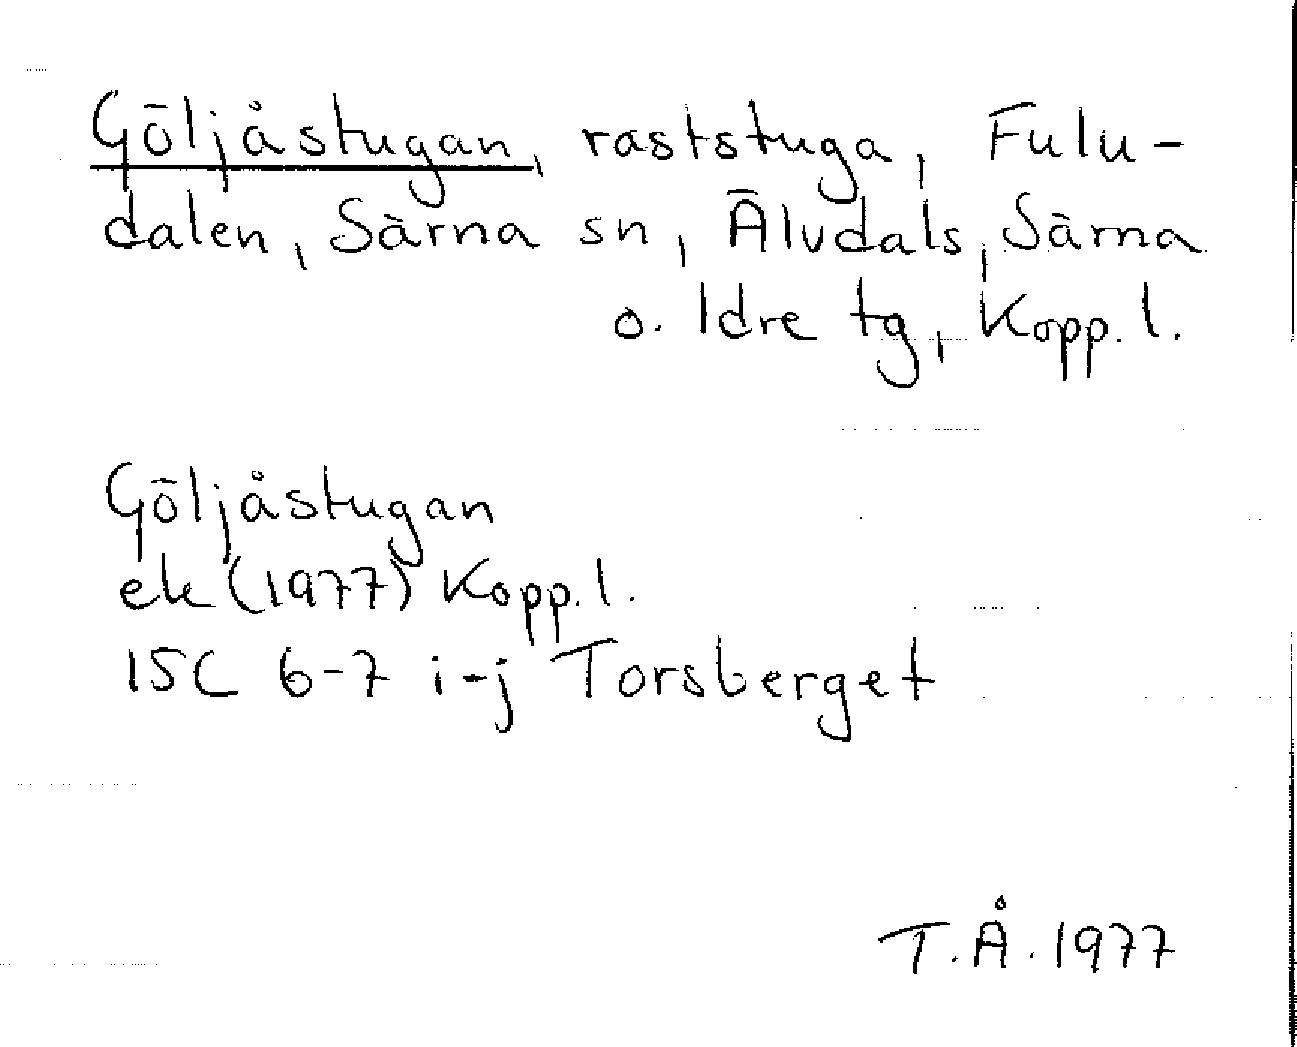 Göljåstugan, raststuga, Fulu-
dalen, Särna sn, Älvdals, Särna
o. Idre tg, Kopp. l.
Göljåstugan
ek (1977) Kopp. l.
15C 6-7 i-j Torsberget
T. Å. 1977